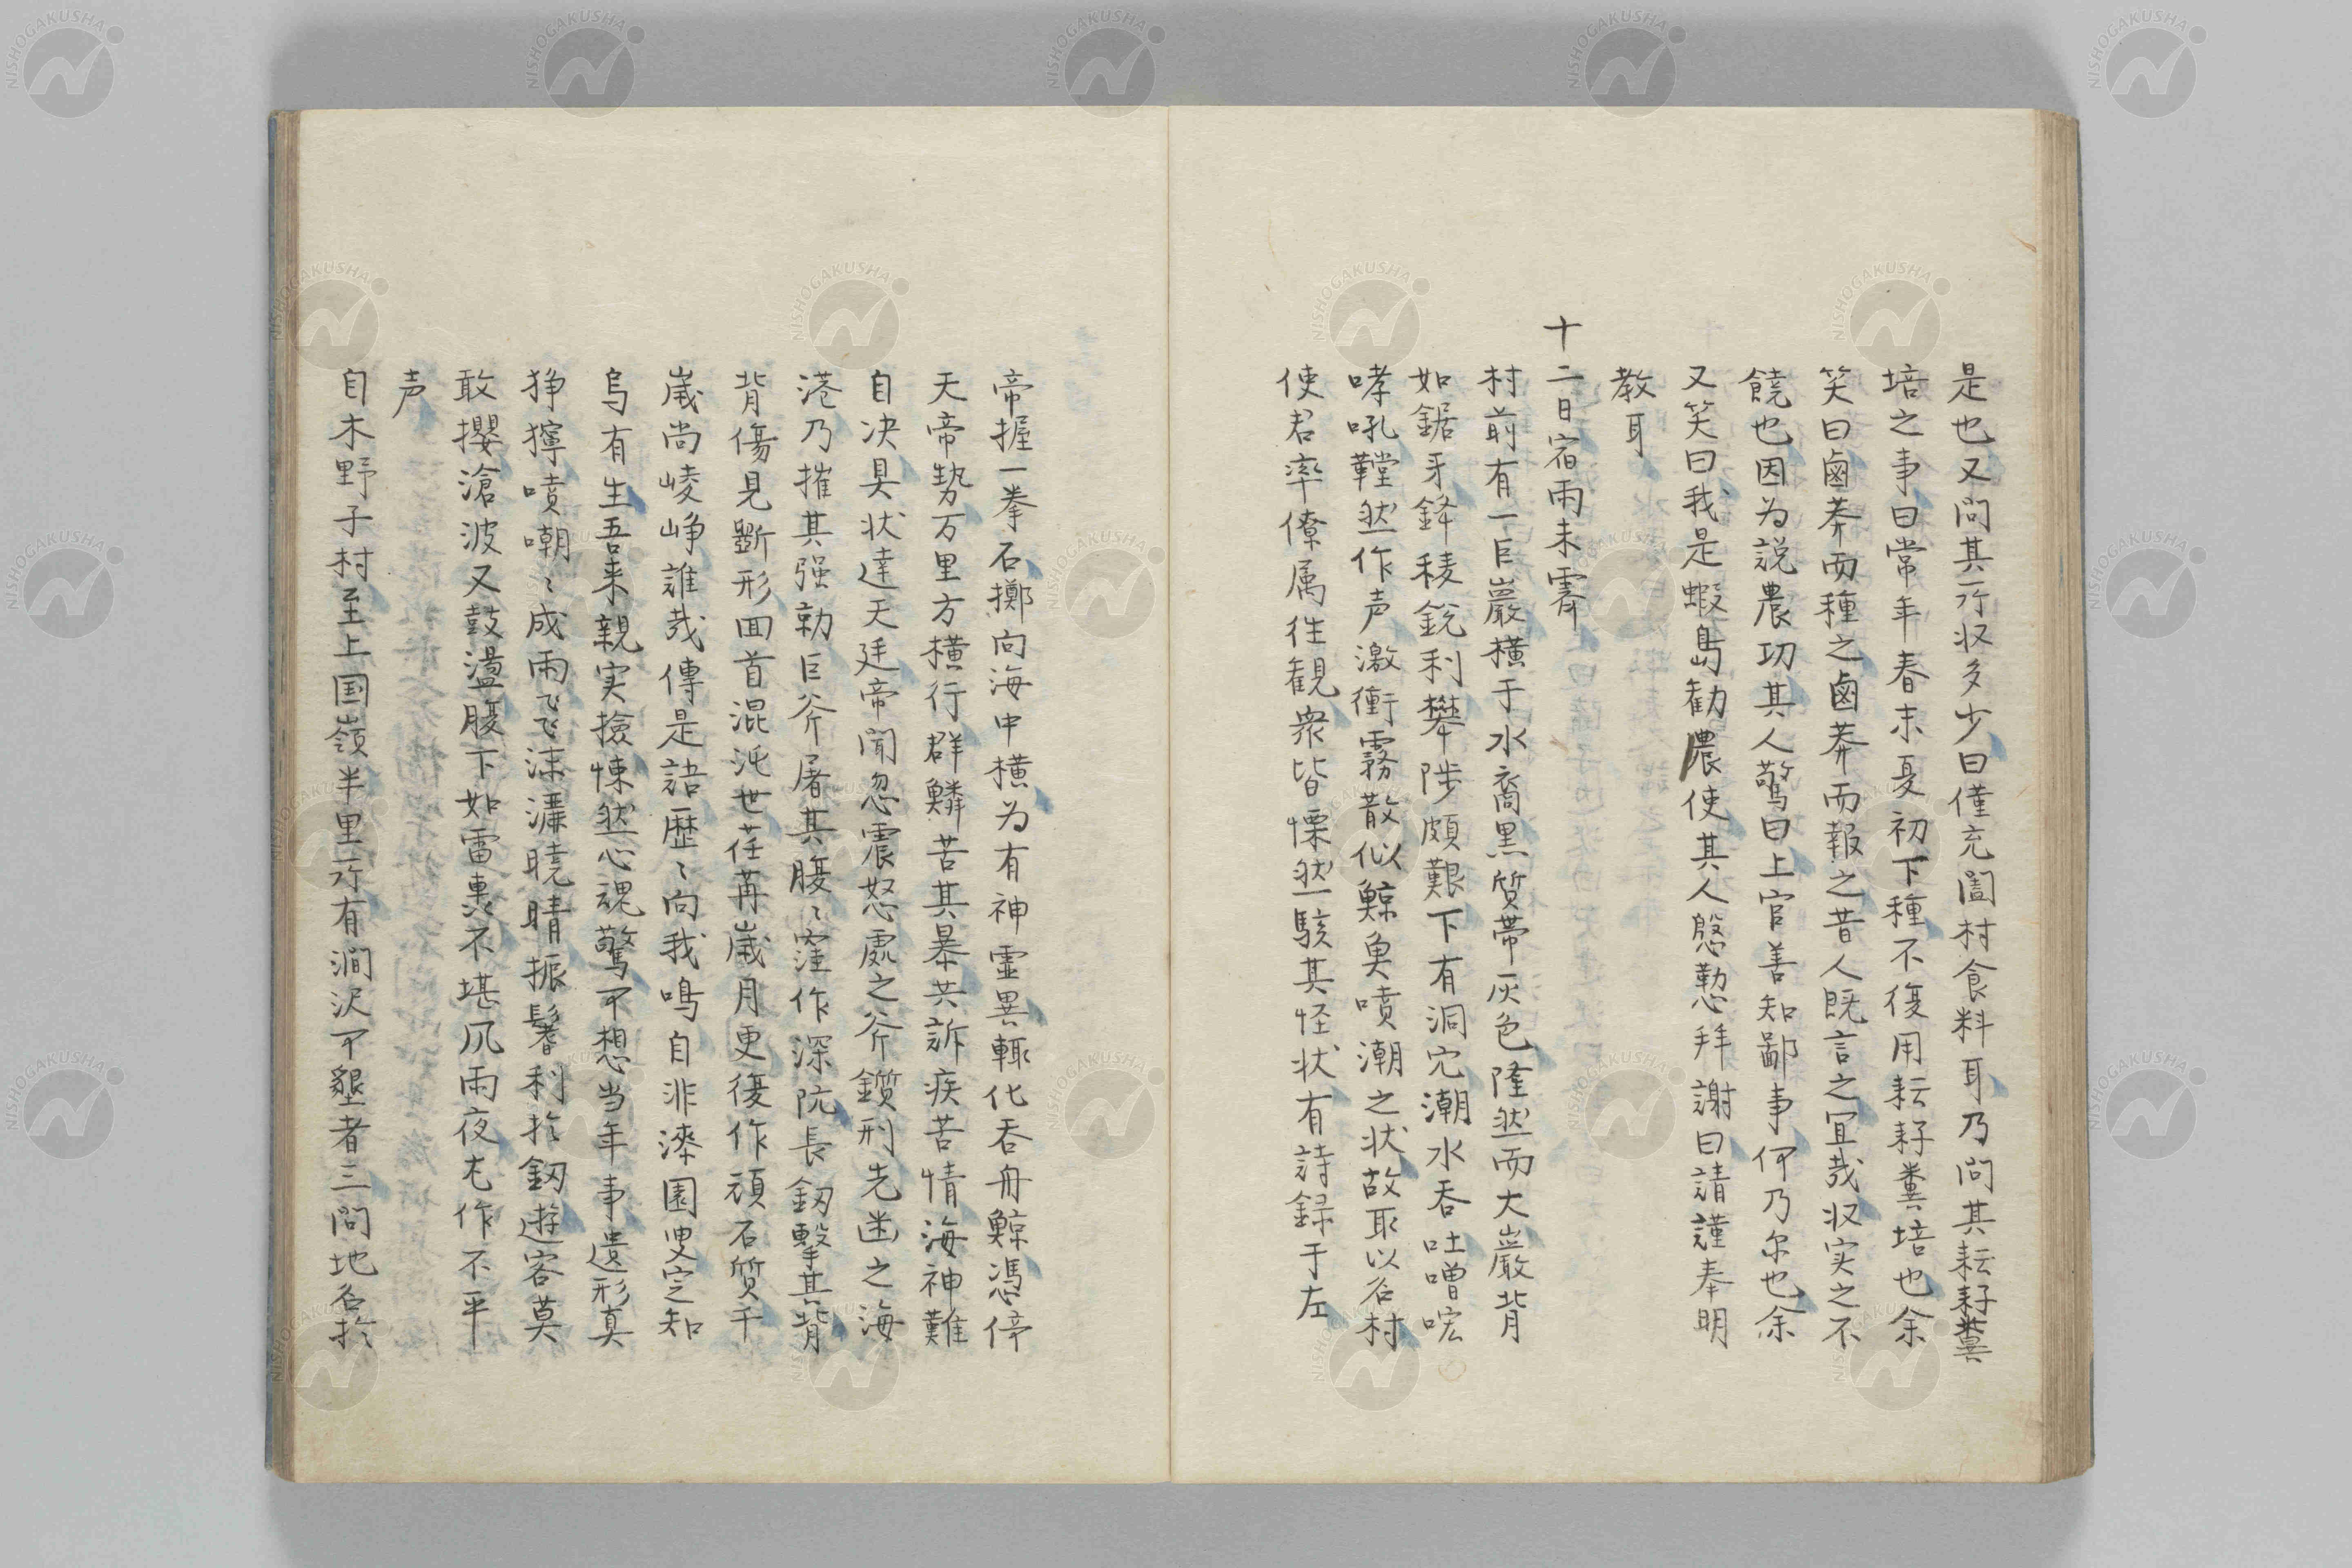 是也又問其所収多少曰僅充闔村食料耳乃問其耘耔糞
培之事曰常年春末夏初下種不復用耘耔糞培也余
笑曰鹵莽而種之鹵莽而報之昔人既言之冝哉収实之不
饒也因为説農功其人驚曰上官善知鄙事何乃尔也余
又笑曰我是蝦島勧農使其人慇懃拜謝曰請謹奉明
教耳
十二日宿雨未霽
村前有一巨巖横于水裔黒質帯灰色隆然而大巖背
如鋸牙鋒稜鋭利攀陟頗艱下有洞穴潮水呑吐噌吰
哮吼鞺然作声激衝霧散似鯨魚噴潮之状故取以名村
使君率僚属往観衆皆慄然駭其怪状有詩録于左
帝握一拳石擲向海中横为有神霊異輙化呑舟鯨憑倚
天帝勢万里方横行群鱗苦其暴共訴疾苦情海神難
自决具状達天廷帝聞忽震怒處之斧鑕刑先凾之海
港乃摧其强勍巨斧屠其腹〻窪作深阬長釼擊其背
背傷見斷形囬首混沌世荏苒歳月更復作頑石質千
歳尚崚崢誰哉傳是語歴〻向我鳴自非漆園叟定知
烏有生吾来親实撿悚然心魂驚可想当年事遺形真
猙獰噴嘲〻成雨飞沫瀑暁晴振鬐利於釼遊客莫
敢攖滄波又鼓盪腹下如雷轟不堪风雨夜尤作不平
声
自木野子村至上国嶺半里所有澗沢可墾者三問地名於